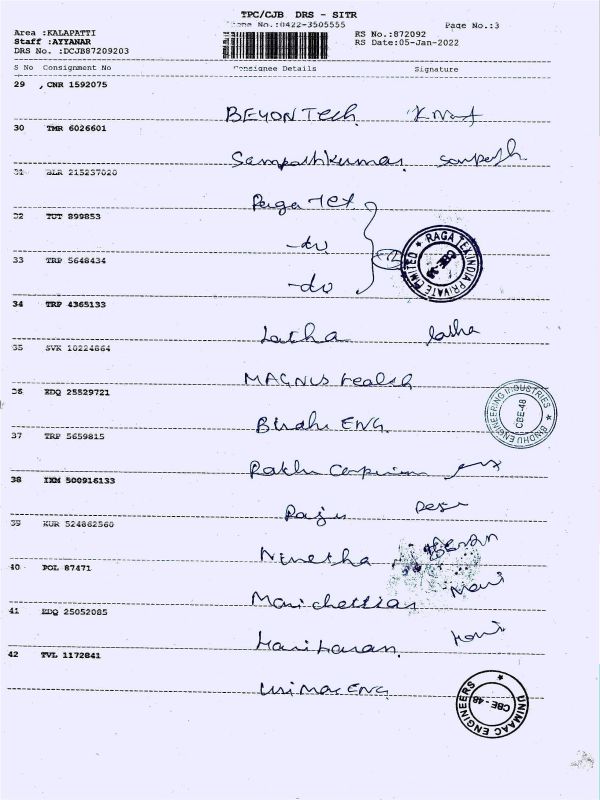 TPC/CJB DRS - SITR
Phone No.:0422-3505555
Page No.:3
Area :KALAPATTI
Staff :AYYANAR
DRS No. :DCJB87209203
RS No.:872092
RS Date:05-Jan-2022
S No Consignment No Consignee Details Signature
29 CNR 1592075
BEYONTech
30 TMR 6026601
Sampathkumar sampath
31 BLR 215237020
Raga Tex
32 TUT 899853
-do
33 TRP 5648434
-do
RAGA TEX INDIA PRIVATE LIMITED
34 TRP 4365133
Latha latha
35 SVK 10224864
MAGNUS Health
36 EDQ 25529721
Bindhu ENG.
BINDHU ENGINEERING INDUSTRIES
CBE-48
37 TRP 5659815
38 IXM 500916133
Raju
39 KUR 524862560
Nivetha
40 POL 87471
Marichettiar Mari
41 EDQ 25052085
Hariharan. Hari
42 TVL 1172841
Unimac ENG
UNIMAAC ENGINEERS
CBE - 48